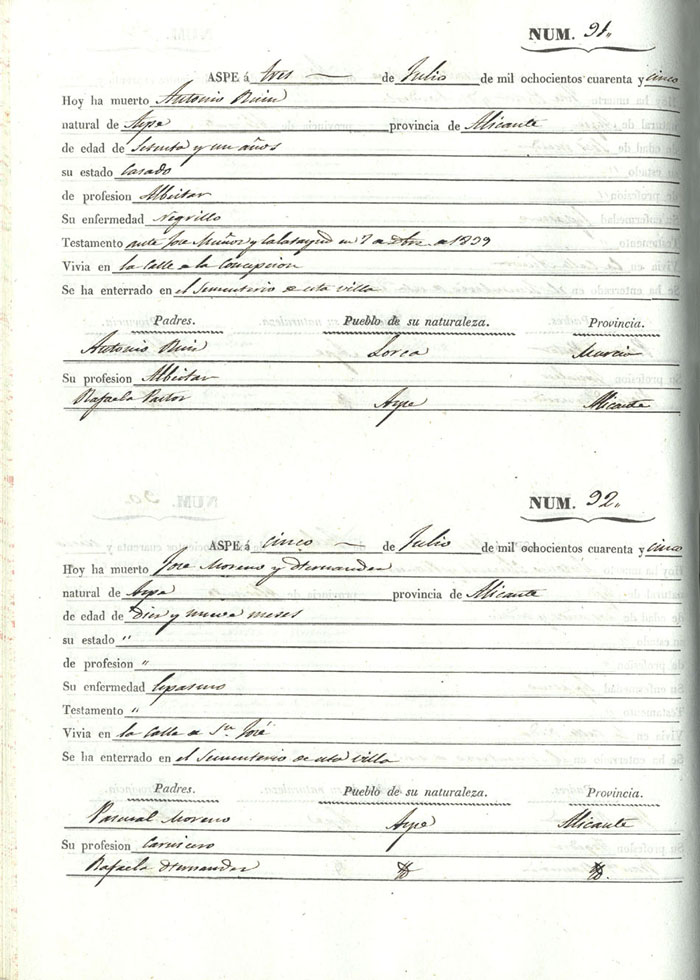 NUM. 91.
ASPE á tres de Julio de mil ochocientos cuarenta y cinco
Hoy ha muerto Antonio
natural de Aspe provincia de Alicante
de edad de Sesenta y un años
su estado Casado
de profesion Albeitar
Su enfermedad Negrillo
Testamento ante Jose Muñoz y Calatayud en 7 de de 1839
Vivia en la Calle de la Concepcion
Se ha enterrado en el Sementerio de esta villa
Padres. Pueblo de su naturaleza. Provincia.
Antonio Lorca Murcia
Su profesion Albeitar
Rafaela Pastor Aspe Alicante
NUM. 92.
ASPE á cinco de Julio de mil ochocientos cuarenta y cinco
Hoy ha muerto Jose Moreno y Hernandez
natural de Aspe provincia de Alicante
de edad de Diez y nueve meses
su estado "
de profesion "
Su enfermedad
Testamento "
Vivia en la Calle de Sn. José
Se ha enterrado en el Sementerio de esta villa
Padres. Pueblo de su naturaleza. Provincia.
Pascual Moreno Aspe Alicante
Su profesion Carnicero
Rafaela Hernandez